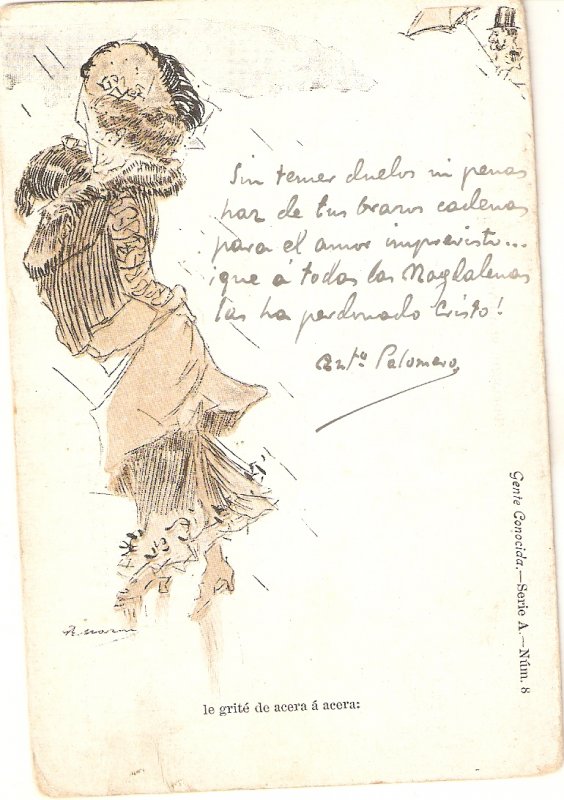 Sin temer duelos ni penas
haz de tus brazos cadenas
para el amor imprevisto...
¡que á todas las Magdalenas
las ha perdonado Cristo!
Antº Palomero
Gente Conocida.—Serie A.—Núm. 8
le grité de acera á acera: